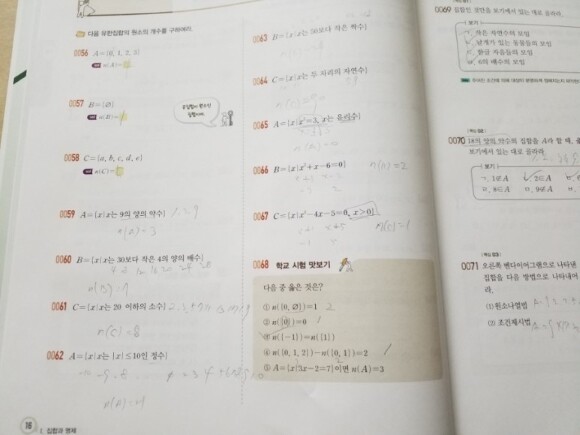 다음 유한집합의 원소의 개수를 구하여라.
0056 A={0, 1, 2, 3}
n(A)=
0057 B={∅}
n(B)=
공집합이 원소인
집합이야.
0058 C={a, b, c, d, e}
n(C)=
0059 A={x|x는 9의 양의 약수}
n(A)=3
0060 B={x|x는 30보다 작은 4의 양의 배수}
n(B)=7
0061 C={x|x는 20 이하의 소수}
n(C)=8
0062 A={x|x는 |x|≤10인 정수}
18 Ⅰ. 집합과 명제
0063 B={x|x는 50보다 작은 짝수}
0064 C={x|x는 두 자리의 자연수}
0065 A={x|x²=3, x는 유리수}
n(A)=0
0066 B={x|x²+x-6=0} n(B)=2
0067 C={x|x²-4x-5=0, x>0} n(C)=1
0068 학교 시험 맛보기
다음 중 옳은 것은?
① n({0, ∅})=1 2
② n({0})=0 1
③ n({-1})=n({1})
④ n({0, 1, 2})-n({0, 1})=2
⑤ A={x|3x-2=7}이면 n(A)=3
0069 집합인 것만을 보기에서 있는 대로 골라라.
보기
ㄱ. 작은 자연수의 모임
ㄴ. 날개가 있는 동물들의 모임
ㄹ. 6의 배수의 모임
0070 18의 양의 약수의 집합을 A라 할 때,
보기에서 있는 대로 골라라.
보기
ㄱ. 1∉A ㄴ. 2∈A
0071 오른쪽 벤다이어그램으로 나타낸
집합을 다음 방법으로 나타내어
라.
⑴ 원소나열법
⑵ 조건제시법